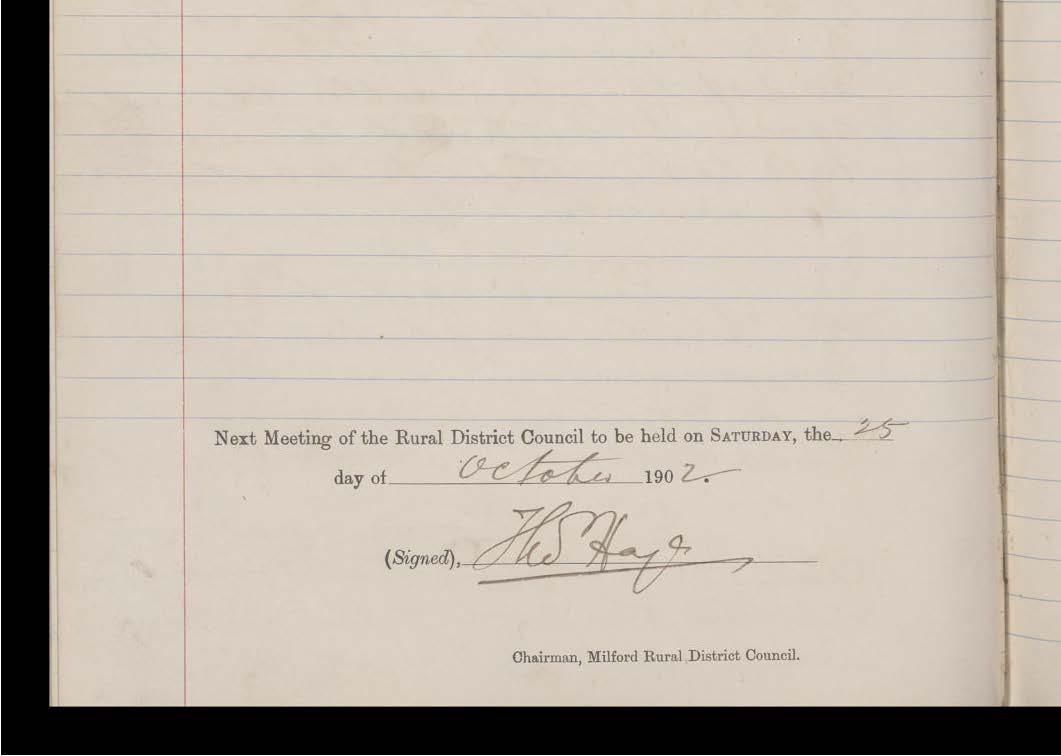 Next Meeting of the Rural District Council to be held on SATURDAY, the 25
day of October 1902.
(Signed), Thos Hayes
Chairman, Milford Rural District Council.